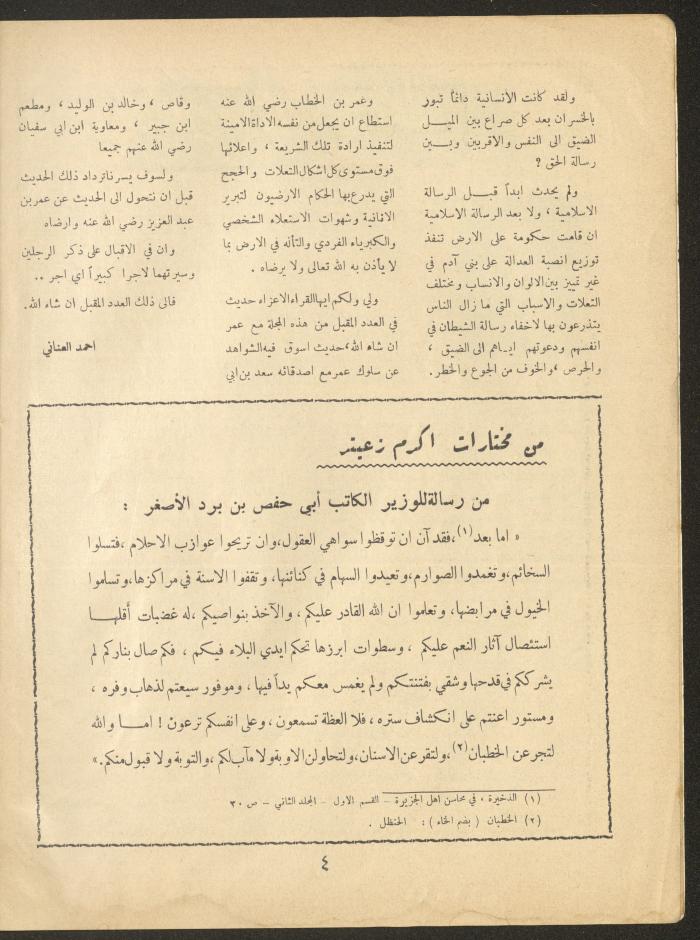 ولقد كانت الأنسانية دائماً تبور
بالخسران بعد كل صراع بين الميل
الضيق الى النفس والاقربين وبين
رسالة الحق ؟
ولم يحدث ابداً قبل الرسالة
الاسلامية ، ولا بعد الرسالة الاسلامية
ان قامت حكومة على الارض تنفذ
توزيع انصبة العدالة على بني آدم في
غير تمييز بين الالوان والانساب ومختلف
التعلات والاسباب التي ما زال الناس
يتذرعون بها لاخفاء رسالة الشيطان في
انفسهم ودعوتهم اياهم الى الضيق ،
والحرص ، والخوف من الجوع والخطر.
وعمر بن الخطاب رضي الله عنه
استطاع ان يجعل من نفسه الاداة الامينة
لتنفيذ ارادة تلك الشريعة ، واعلائها
فوق مستوى كل اشكال التعلات والحجج
التي يدرع بها الحكام الارضيون لتبرير
الانانية وشهوات الاستعلاء الشخصي
والكبرياء الفردي والتأله في الارض بما
لا يأذن به الله تعالى ولا يرضاه .
ولي ولكم ايها القراء الاعزاء حديث
في العدد المقبل من هذه المجلة مع عمر
ان شاء الله ، حديث اسوق فيه الشواهد
عن سلوك عمر مع اصدقائه سعد بن ابي
وقاص ، وخالد بن الوليد ، ومطعم
ابن جبير ، ومعاوية ابن ابي سفيان
رضي الله عنهم جميعا
ولسوف يسرنا ترداد ذلك الحديث
قبل ان نتحول الى الحديث عن عمر بن
عبد العزيز رضي الله عنه وارضاه
وان في الاقبال على ذكر الرجلين
وسيرتهما لاجرا كبيراً اي اجر ..
فالى ذلك العدد المقبل ان شاء الله.
احمد العناني
من مختارات اكرم زعيتر
من رسالة للوزير الكاتب أبي حفص بن برد الأصغر :
« اما بعد (١) ، فقد آن ان توقظوا سواهي العقول ، وان تريحوا عوازب الاحلام ، فتسلوا
السخائم ، وتغمدوا الصوارم ، وتعيدوا السهام في كنائنها ، وتقفوا الاسنة في مراكزها ، وتساموا
الخيول في مرابضها ، وتعلموا ان الله القادر عليكم ، والآخذ بنواصيكم ، له غضبات أقلها
استئصال آثار النعم عليكم ، وسطوات ابرزها تحكم ايدي البلاء فيكم ، فكم صال بناركم لم
يشرككم في قدحها وشقي بفتنتكم ولم يغمس معكم يداً فيها ، وموفور سيعتم لذهاب وفره ،
ومستور اعنتم على انكشاف ستره ، فلا العظة تسمعون ، وعلى انفسكم ترعون ! اما والله
لتجرعن الخطبان (٢) ، ولتقرعن الاسنان ، ولتحاولن الاوبة ولا مآب لكم ، والتوبة ولا قبول منكم .»
(١) الذخيرة ، في محاسن اهل الجزيرة - القسم الاول - المجلد الثاني - ص ٣٠
(٢) الخطبان ( بضم الخاء ) : الحنظل .
٤